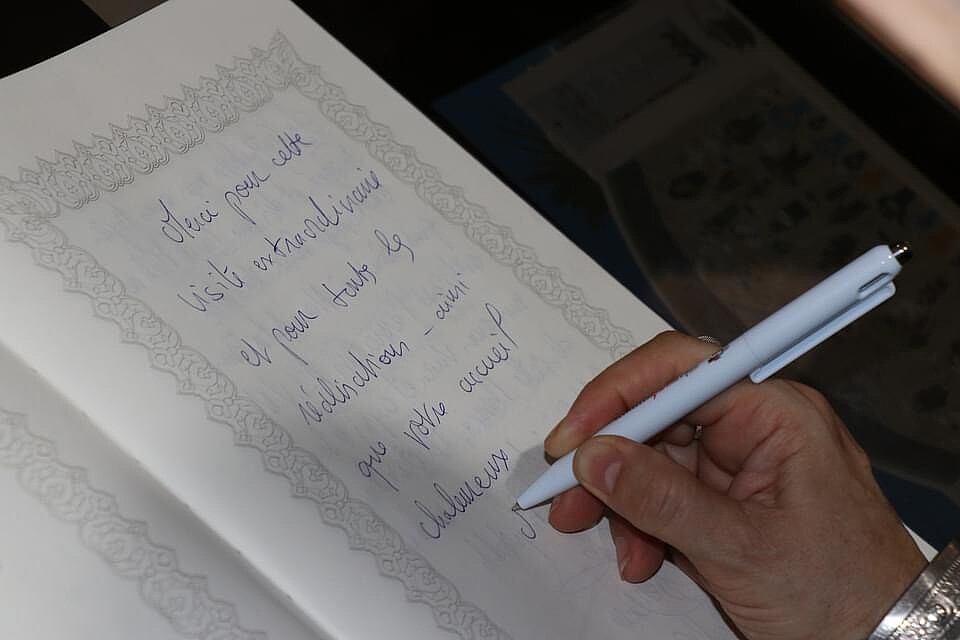 Merci pour cette
visite extraordinaire
et pour toutes les
réalisations - ainsi
que votre accueil
chaleureux